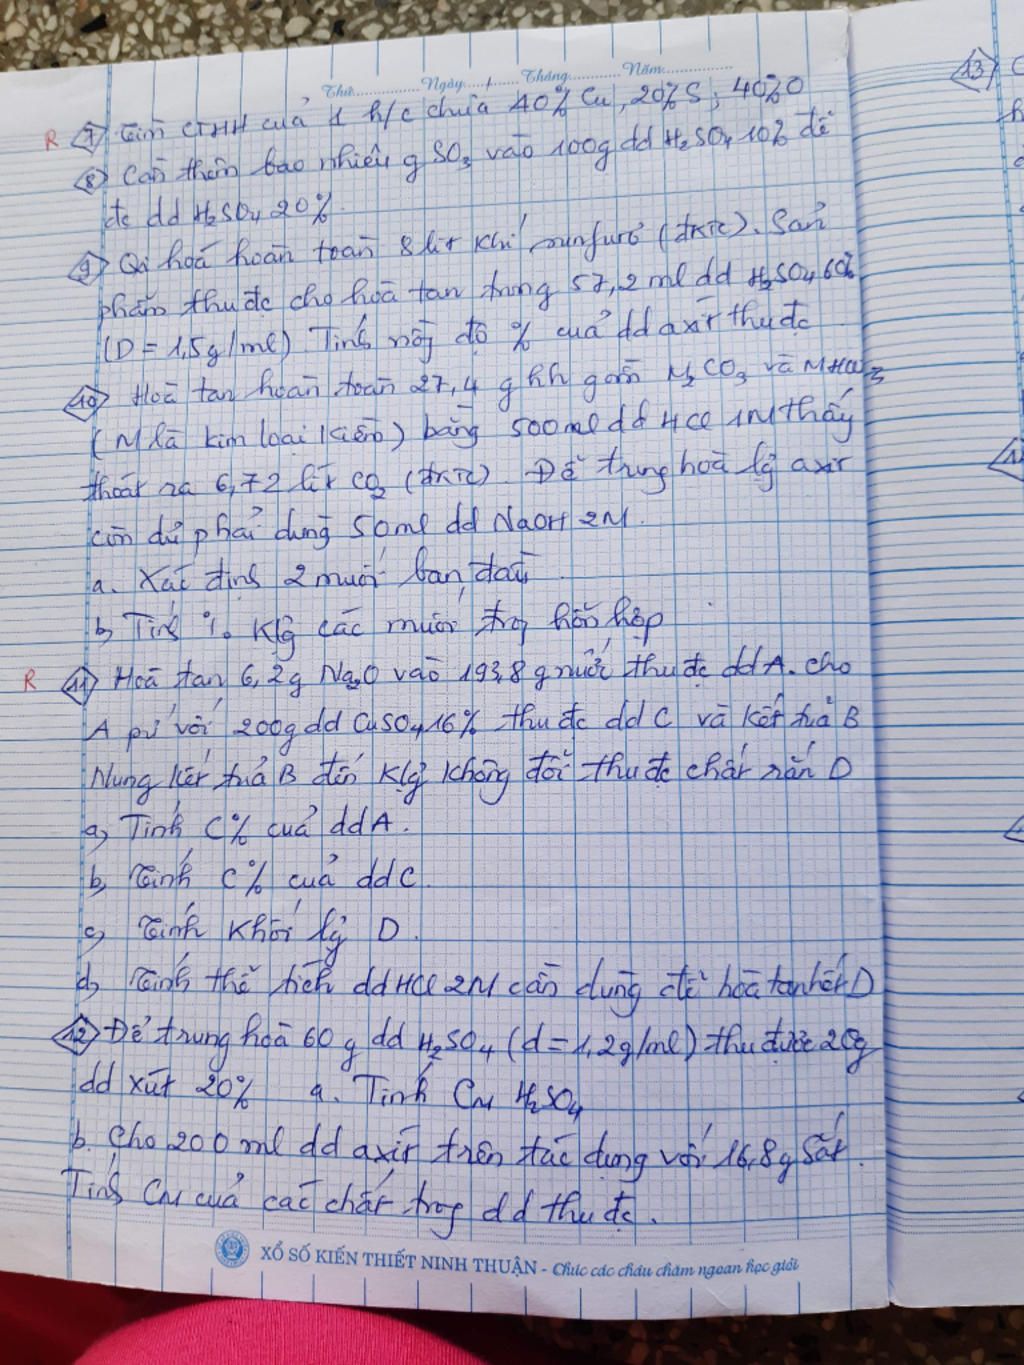 Thứ............ Ngày....1.... Tháng............ Năm...............
R 7 Tìm CTHH của 1 h/c chứa 40% Cu, 20% S, 40% O
8 Cần thêm bao nhiêu g SO3 vào 100g dd H2SO4 10% để
đc dd H2SO4 20%.
9 Oxi hoá hoàn toàn 8 lít khí sunfurơ (đktc). Sản
phẩm thu đc cho hoà tan trong 57,2 ml dd H2SO4 60%
(D = 1,5g/ml). Tính nồng độ % của dd axit thu đc
10 Hoà tan hoàn toàn 27,4 g hh gồm M2CO3 và MHCO3
(M là kim loại kiềm) bằng 500ml dd HCl 1M thấy
thoát ra 6,72 lít CO2 (đktc). Để trung hoà lg axit
còn dư phải dùng 50ml dd NaOH 2M.
a. Xác định 2 muối ban đầu
b, Tính % Klg các muối trog hỗn hợp
R 11 Hoà tan 6,2g Na2O vào 193,8 g nước thu đc dd A. cho
A pứ với 200g dd CuSO4 16% thu đc dd C và kết tủa B
Nung kết tủa B đến klg không đổi thu đc chất rắn D
a, Tính C% của dd A.
b, Tính C% của dd C.
c, Tính khối lg D.
d, Tính thể tích dd HCl 2M cần dùng để hoà tan hết D
12 Để trung hoà 60 g dd H2SO4 (d = 1,2g/ml) thu được 20g
dd xút 20% a. Tính CM H2SO4
b. Cho 200 ml dd axit trên tác dụng với 16,8g Sắt.
Tính CM của các chất trog dd thu đc.
XỔ SỐ KIẾN THIẾT NINH THUẬN - Chúc các cháu chăm ngoan học giỏi
13